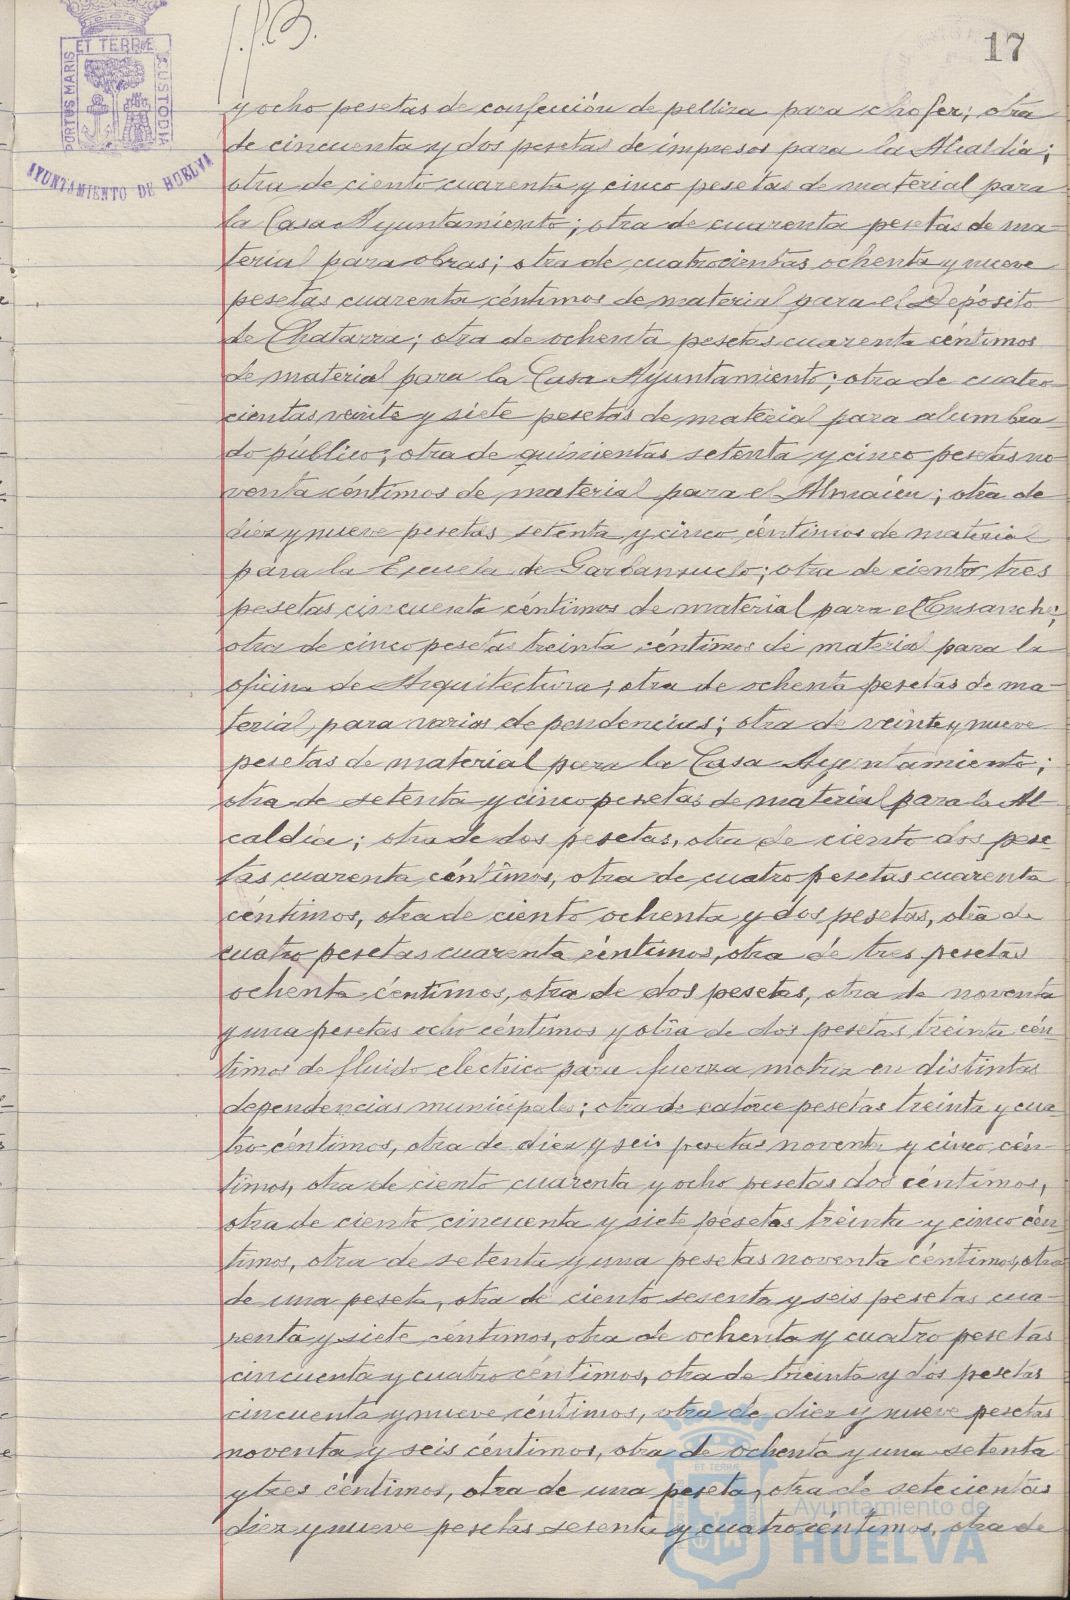 17
PORTUS MARIS ET TERRÆ CUSTODIA
AYUNTAMIENTO DE HUELVA
y ocho pesetas de confección de pelliza para chofer; otra
de cincuenta y dos pesetas de impresos para la Alcaldía;
otra de ciento cuarenta y cinco pesetas de material para
la Casa Ayuntamiento; otra de cuarenta pesetas de ma-
terial para obras; otra de cuatrocientas ochenta y nueve
pesetas cuarenta céntimos de material para el Depósito
de Chatarra; otra de ochenta pesetas cuarenta céntimos
de material para la Casa Ayuntamiento; otra de cuatro-
cientas veinte y siete pesetas de material para alumbra-
do público; otra de quinientas setenta y cinco pesetas no-
venta céntimos de material para el Almacén; otra de
diez y nueve pesetas setenta y cinco céntimos de material
para la Escuela de Garbanzuelo; otra de ciento tres
pesetas cincuenta céntimos de material para el Ensanche;
otra de cinco pesetas treinta céntimos de material para la
oficina de Arquitectura; otra de ochenta pesetas de ma-
terial para varias dependencias; otra de veinte y nueve
pesetas de material para la Casa Ayuntamiento;
otra de setenta y cinco pesetas de material para la Al-
caldía; otra de dos pesetas, otra de ciento dos pese-
tas cuarenta céntimos, otra de cuatro pesetas cuarenta
céntimos, otra de ciento ochenta y dos pesetas, otra de
cuatro pesetas cuarenta céntimos, otra de tres pesetas
ochenta céntimos, otra de dos pesetas, otra de noventa
y una pesetas ocho céntimos y otra de dos pesetas treinta cén-
timos de fluido electrico para fuerza motriz en distintas
dependencias municipales; otra de catorce pesetas treinta y cua-
tro céntimos, otra de diez y seis pesetas noventa y cinco cén-
timos, otra de ciento cuarenta y ocho pesetas dos céntimos,
otra de ciento cincuenta y siete pesetas treinta y cinco cén-
timos, otra de setenta y una pesetas noventa céntimos, otra
de una peseta, otra de ciento sesenta y seis pesetas cua-
renta y siete céntimos, otra de ochenta y cuatro pesetas
cincuenta y cuatro céntimos, otra de treinta y dos pesetas
cincuenta y nueve céntimos, otra de diez y nueve pesetas
noventa y seis céntimos, otra de ochenta y una setenta
y tres céntimos, otra de una peseta, otra de setecientas
diez y nueve pesetas sesenta y cuatro céntimos, otra de
Ayuntamiento de
HUELVA